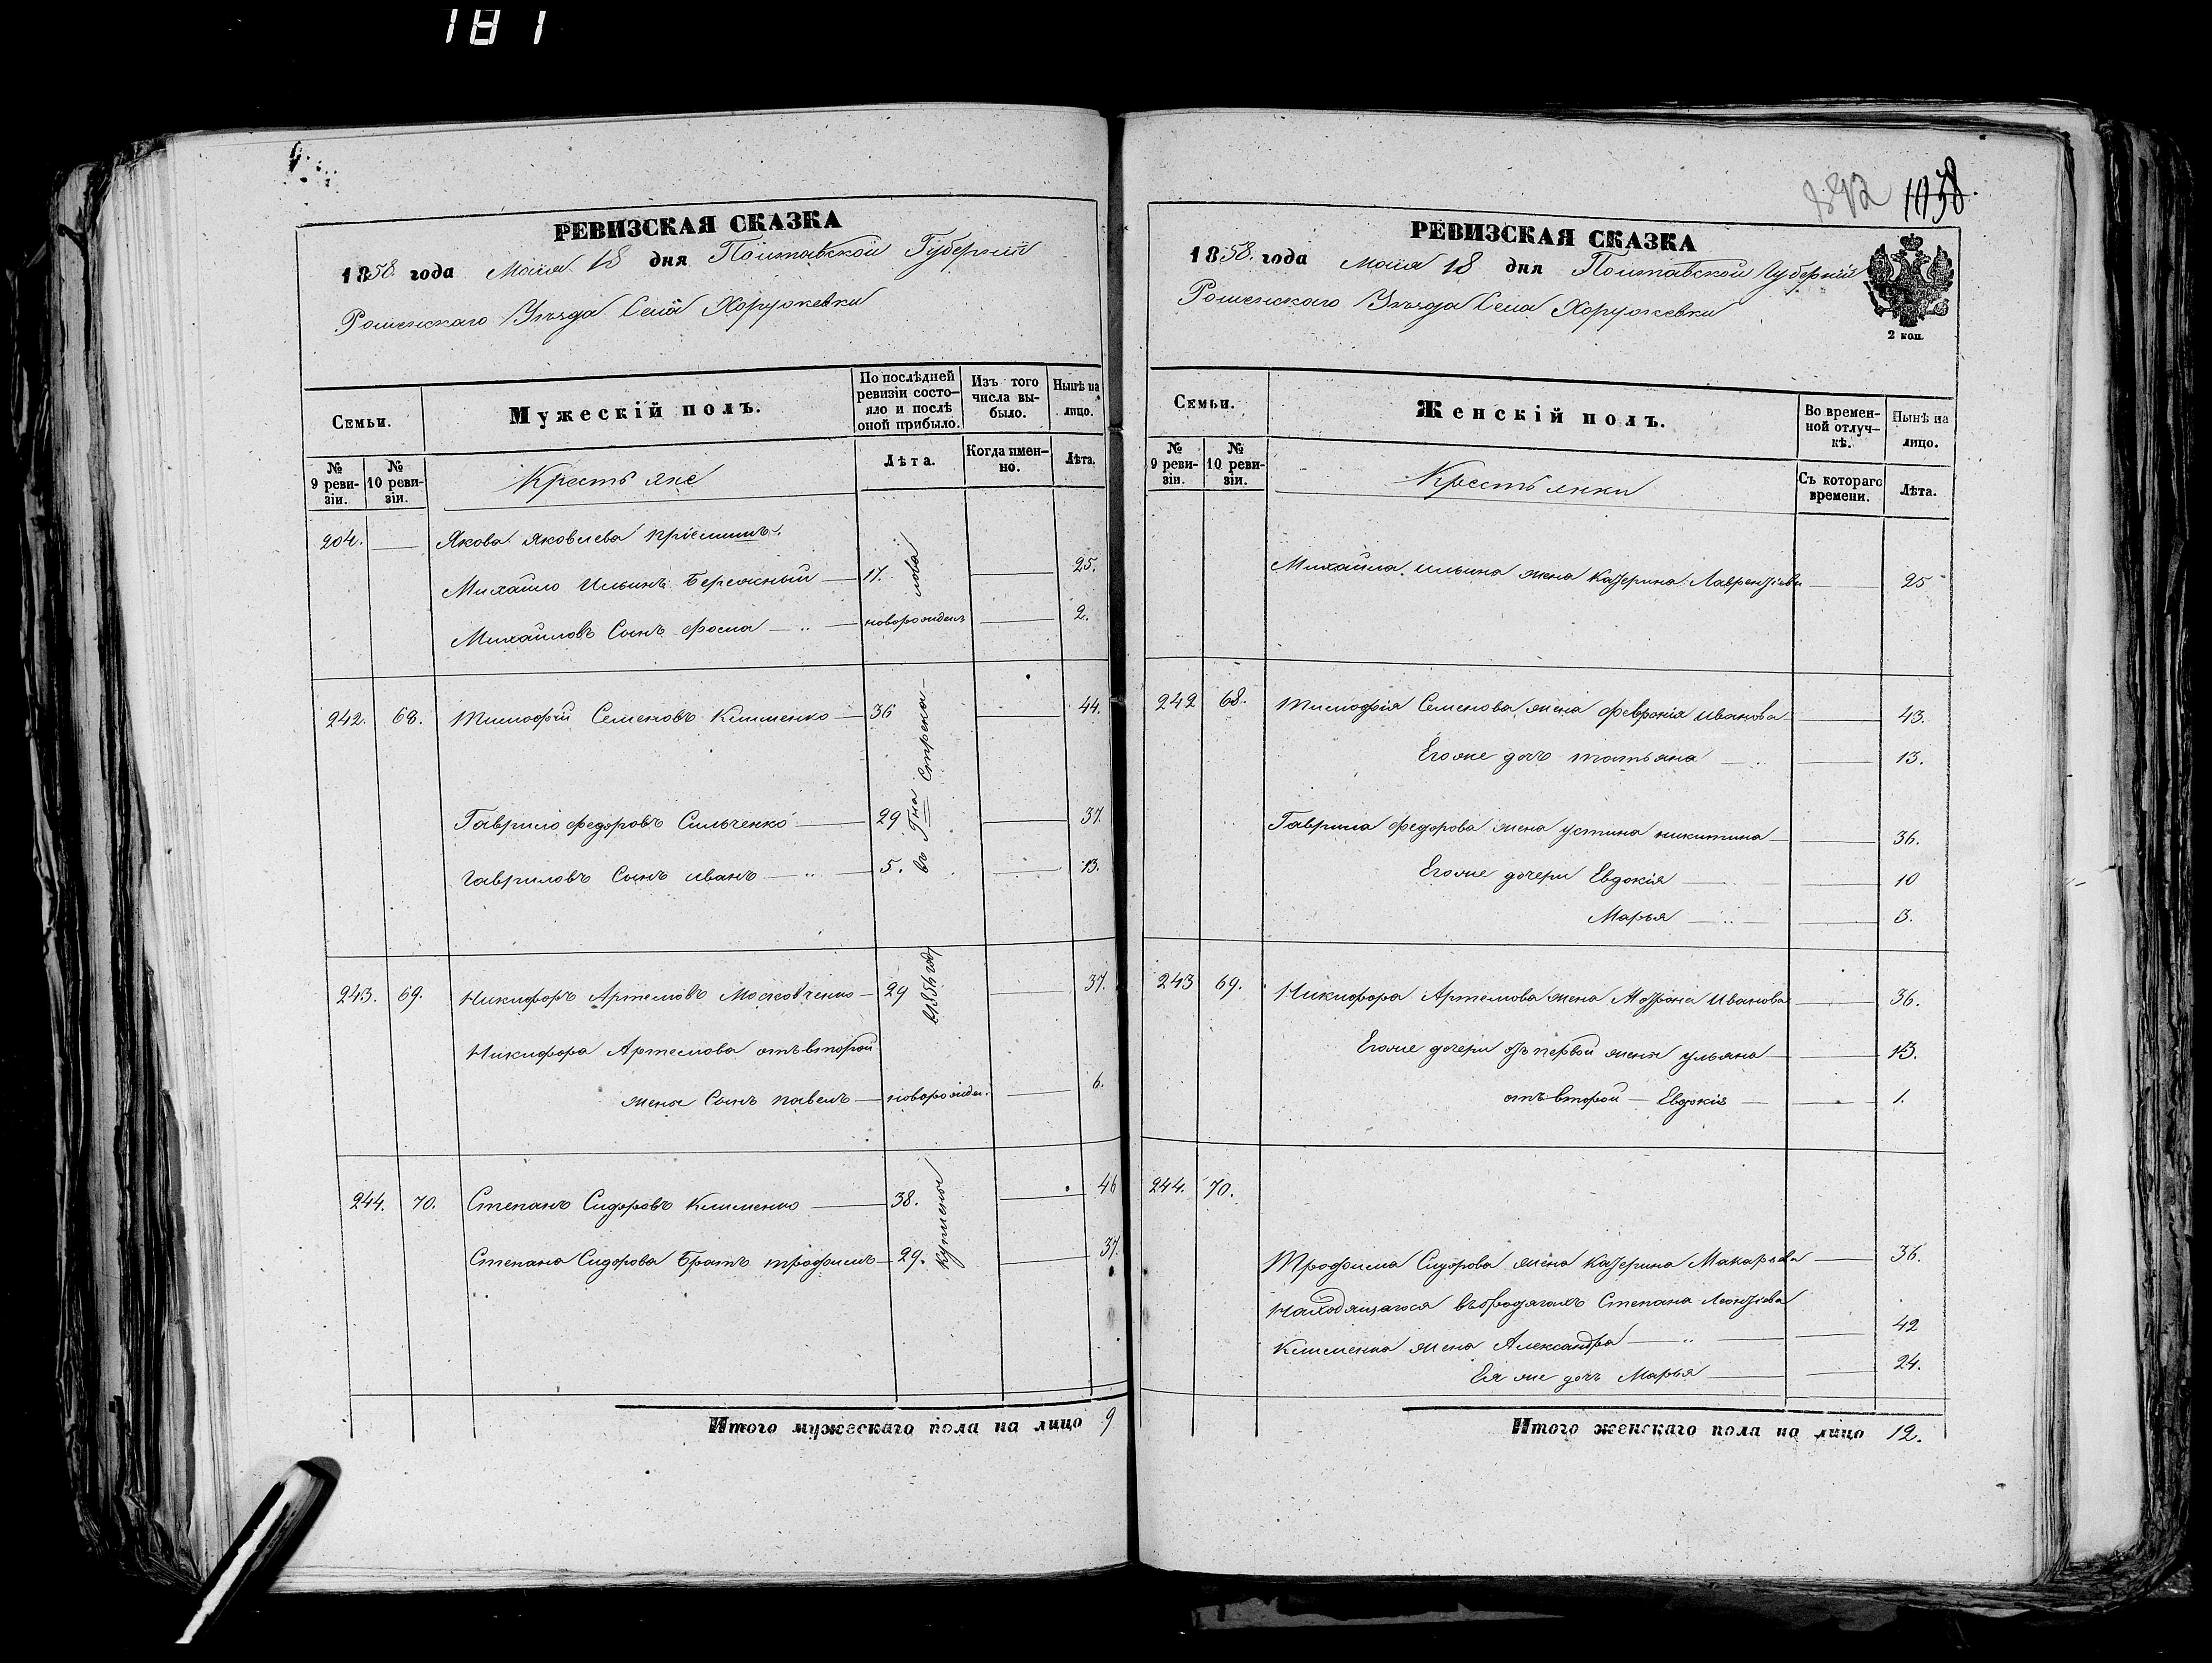 181
РЕВИЗСКАЯ СКАЗКА
1858 года Маія 18 дня Полтавской Губерніи
Роменскаго Уѣзда Села Хоружевки
Семьи.
Мужескій полъ.
По послѣдней ревизіи состо-
яло и послѣ оной прибыло.
Изъ того числа вы-
было.
Нынѣ на лицо.
№ 9 реви-
зіи.
№ 10 реви-
зіи.
Крестьяне
Лѣта.
Когда имен-
но.
Лѣта.
204. —
Якова Яковлева пріемышъ.
Михайло Ильинъ Бережный — 17. — 25.
Михайловъ Сынъ Фома — новорожденъ — 2.
242. 68. Тимофій Семеновъ Клименко — 36 — 44.
Гаврило Федоровъ Сильченко — 29 — 37.
Гавриловъ Сынъ Иванъ — 5. — 13.
243. 69. Никифоръ Артемовъ Московченко — 29 — 37.
Никифора Артемова отъ второй
жены Сынъ Павелъ — новорожден. — 6.
244. 70. Степанъ Сидоровъ Клименко — 38. — 46
Степана Сидорова Братъ Трофимъ — 29. — 37.
куплены
в 1856 году
въ Гна Стрека-
лова
Итого мужескаго пола на лицо 9
1038.
РЕВИЗСКАЯ СКАЗКА
1858. года Маія 18 дня Полтавской Губерніи
Роменскаго Уѣзда Села Хоружевки
2 коп.
Семьи.
Женскій полъ.
Во времен-
ной отлуч-
кѣ.
Нынѣ на лицо.
№ 9 реви-
зіи.
№ 10 реви-
зіи.
Крестьянки
Съ котораго времени.
Лѣта.
Михайла Ильина жена Катерина Лаврентіева — 25
242 68. Тимофія Семенова жена Февронія Иванова — 43.
Егоже дочь Татьяна — 13.
Гаврила Федорова жена Устина Никитина — 36.
Егоже дочери Евдокія — 10
Марья — 3.
243 69. Никифора Артемова жена Мотрона Иванова — 36.
Егоже дочери отъ первой жены Ульяна — 13.
отъ второй — Евдокія — 1.
244. 70.
Трофима Сидорова жена Катерина Макарьева — 36.
Находящагося въ бродягахъ Степана Леонтіева
Клименка жена Александра — 42
Ея же дочь Марья — 24.
Итого женскаго пола на лицо 12.